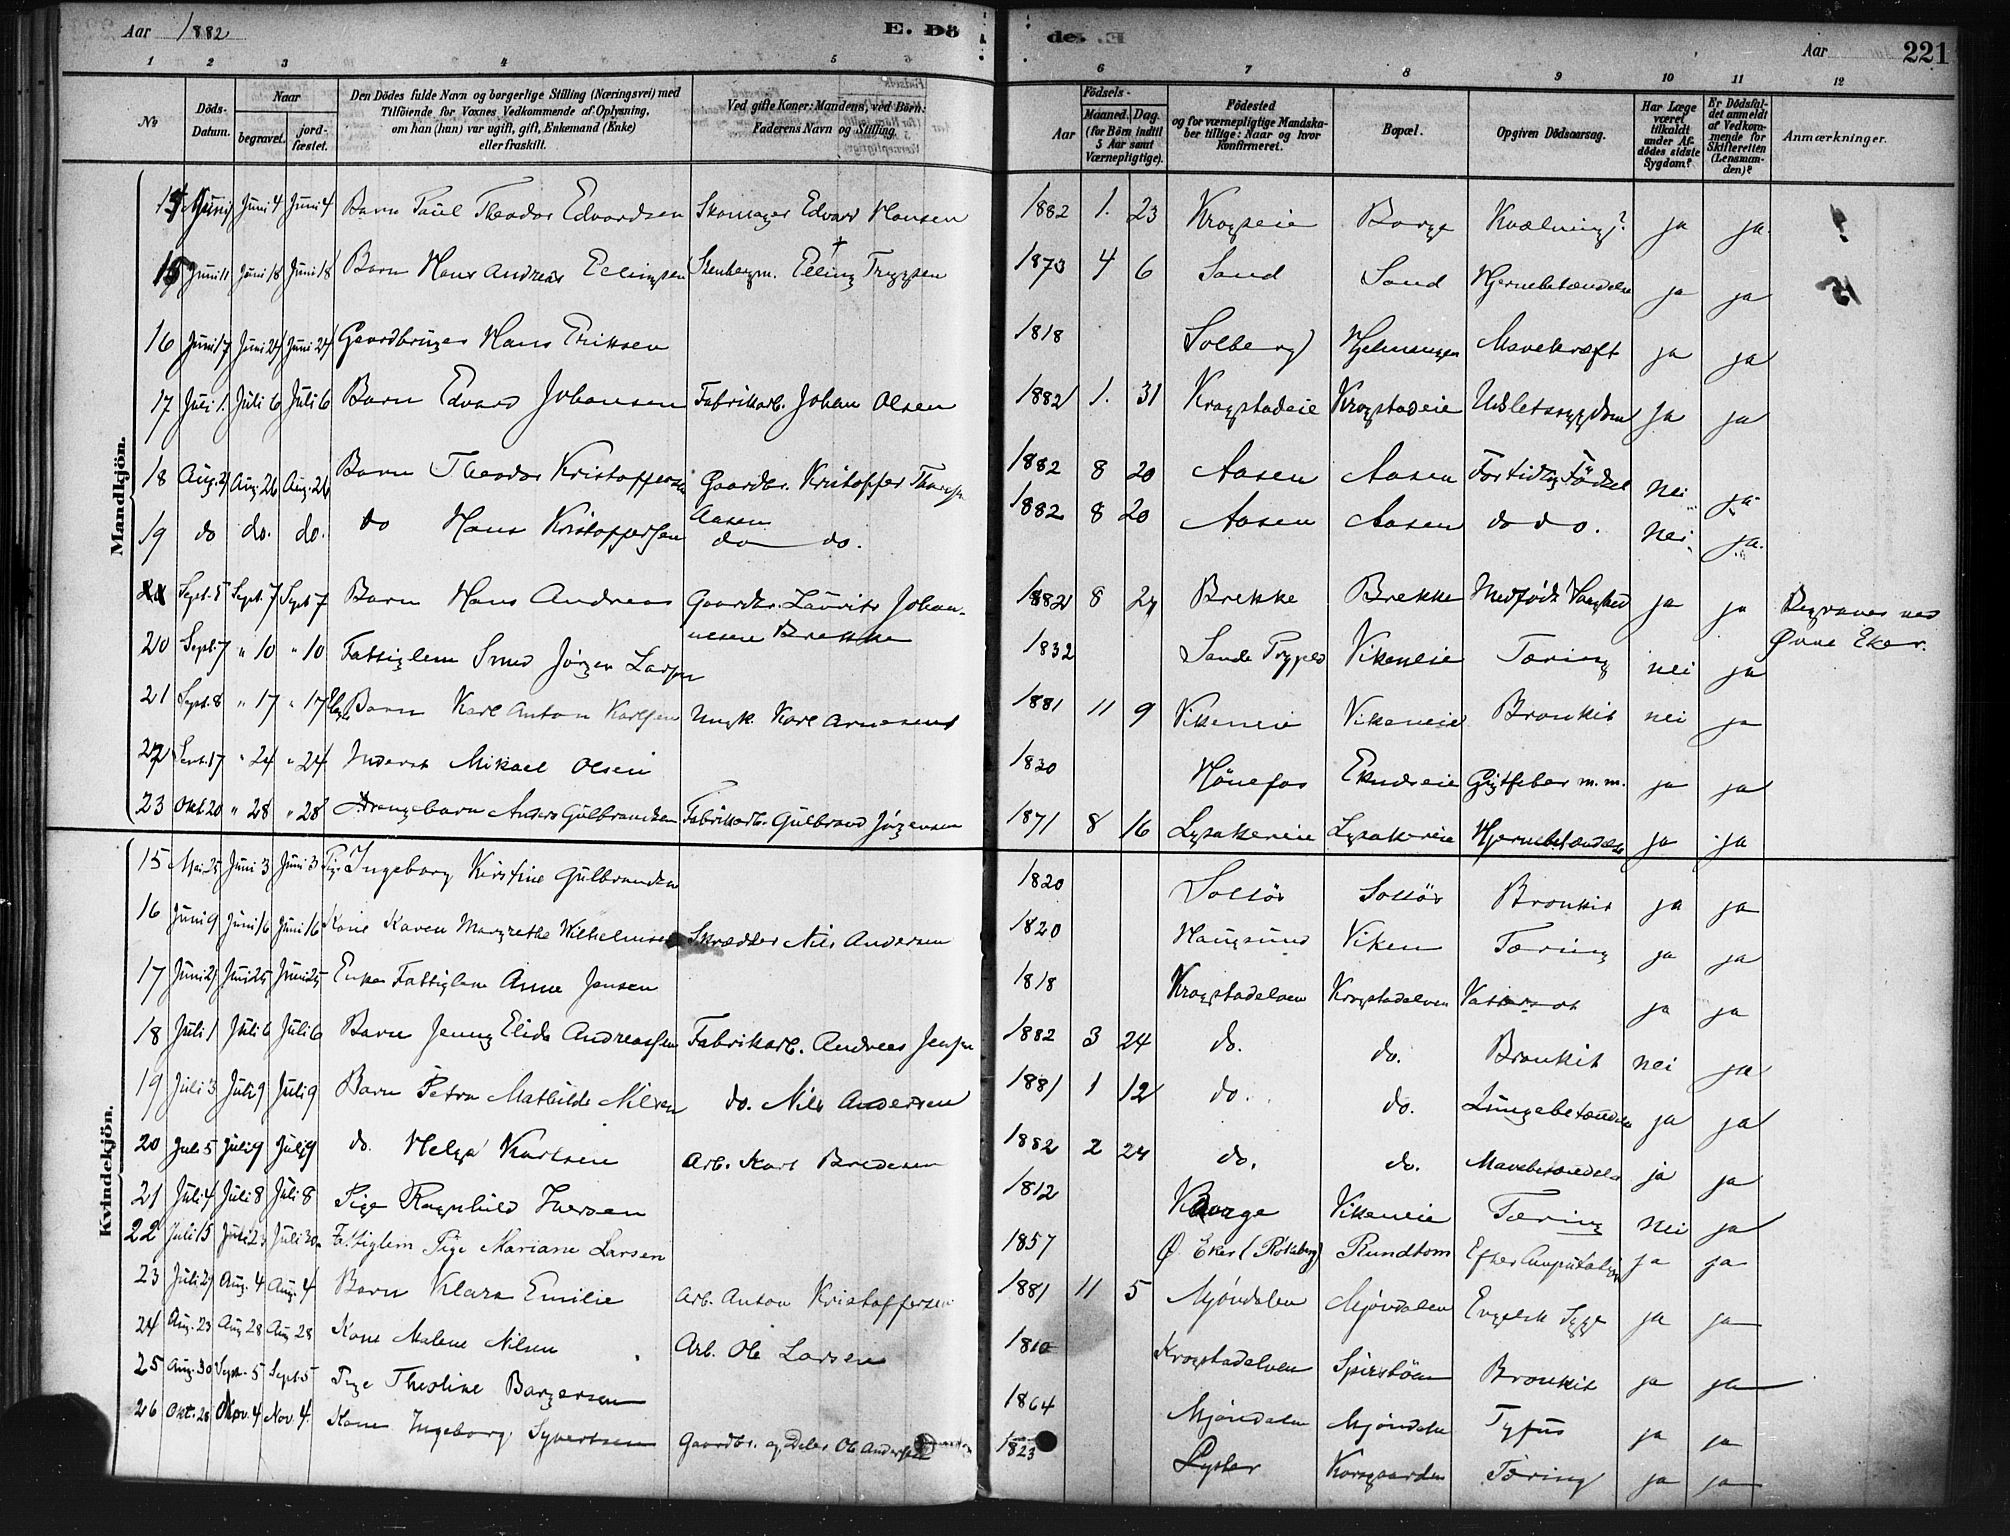 Aar 1882 E. Dö
de. E Aar 221
1 2 3 4 5 6 7 8 9 10 11 12
No Döds-Datum. Naar begravet. jordfæstet. Den Dödes fulde Navn og borgerlige Stilling (Næringsvei) med Tilföiende for Voxnes Vedkommende af Oplysning, om han (hun) var ugift, gift, Enkemand (Enke) eller fraskilt. Ved gifte Koner: Mandens, ved Börn: Faderens Navn og Stilling. Aar Födsels- Maaned. Dag. (for Börn indtil 5 Aar samt Værnepligtige). Födested og for værnepligtige Mandskaber tillige: Naar og hvor Konfirmeret. Bopæl. Opgiven Dödsaarsag. Har Læge været tilkaldt under Afdödes sidste Sygdom? Er Dödsfaldet anmeldt af Vedkommende for Skifteretten (Lensmanden)? Anmærkninger.
Mandkjön.
14 Juni Juni 4 Juni 4 Barn Paul Theodor Edvardsen Skomager Edvard Hansen 1882 1. 23 Krogseie Borge Kvælning? ja ja
15 Juni 11 Juni 18 Juni 18 Barn Hans Andreas Ellingsen Stenhugm. Elling Trygsen 1873 4 6 Sand Sand Hjernebetændelse ja ja
16 Juni 17 Juni 24 Juni 24 Gaardbruger Hans Eriksen 1818 Solberg Hjelmungen Mavekræft ja ja
17 Juli 1. Juli 6 Juli 6 Barn Edvard Johansen Fabrikarb. Johan Olsen 1882 1. 31 Krogstadeie Krogstadeie Udsletssygdom ja ja
18 Aug. 21 Aug. 26 Aug. 26 Barn Theodor Kristoffersen Gaardbr. Kristoffer Thoresen Aasen 1882 8 20 Aasen Aasen For tidlig Födsel nei ja
19 do do. do. do Hans Kristoffersen do do. 1882 8 20 Aasen Aasen do do. nei ja.
Sept. 5 Sept. 7 Sept 7 Barn Hans Andreas Gaardbr. Laurits Johannesen Brekke 1882 8 24 Brekke Brekke Medfødt Svaghed ja ja Begraves ved Øvre Eker.
20 Sept. 7 " 10 " 10 Fattiglem Smed Jørgen Larsen 1832 Sande Prgjeld Vikeneie Tæring nei ja
21 Sept. 8 " 17 " 17 Barn Karl Anton Karlsen Ungk. Karl Arnesen 1881 11 9 Vikeneie Vikeneie Bronkit nei ja
22 Sept. 17 " 24 " 24 Inderst Mikael Olsen 1830 Hönefos Eknæseie Gigtfeber m.m. ja ja
23 Okt. 20 " 28 " 28 Drengebarn Anders Gulbrandsen Fabrikarb. Gulbrand Jörgensen 1871 8 16 Lysakereie Lysakereie Hjernebetændelse ja ja
Kvindekjön.
15 Mai 25 Juni 3 Juni 3 Pige Ingeborg Kirstine Gulbrandsen 1820 Solför Solför Bronkit ja ja
16 Juni 9 Juni 16 Juni 16 Kone Karen Margrethe Wilhelmsen Skrædder Nils Andersen 1820 Haugsund Viken Tæring ja ja
17 Juni 21 Juni 25 Juni 25 Enke Fattiglem Anne Jensen 1818 Krogstadelven Krogstadelven Vattersot ja ja
18 Juli 1 Juli 6 Juli 6 Barn Jenny Elida Andreassen Fabrikarb. Andreas Jensen 1882 3 24 do. do. Bronkit nei ja
19 Juli 3 Juli 9 Juli 9 Barn Petra Mathilde Nilsen do. Nils Andersen 1881 1 12 do. do. Lungebetændelse ja ja
20 Juli 5 Juli 9 Juli 9 do. Helga Karlsen Arb. Karl Bredesen 1882 2 24 do. do. Mavebetændelse ja ja
21 Juli 4 Juli 8 Juli 8 Pige Ragnhild Iversen 1812 Borge Vikeneie Tæring nei ja
22 Juli 15 Juli 23 Juli 30 Fattiglem Pige Mariane Larsen 1857 Ø Eker (Röteberg) Rundtom Efter Amputation ja ja
23 Juli 29 Aug. 4 Aug. 4 Barn Klara Emilie Arb. Anton Kristoffersen 1881 11 5 Mjöndalen Mjöndalen Engelsk Syge ja ja
24 Aug. 23 Aug 28 Aug 28 Kone Malene Nilsen Arb. Ole Larsen 1810 Krogstadelven Spirstöen Bronkit ja ja
25 Aug. 30 Sept. 5 Sept 5 Pige Theoline Borgersen 1864 Mjöndalen Mjöndalen Tyfus ja ja
26 Okt. 28 Nov. 4 Nov. 4 Kone Ingeborg Syvertsen Gaardbr. og Deler Ole Andersen 1823 Lyster Korsgaarden Tæring ja ja